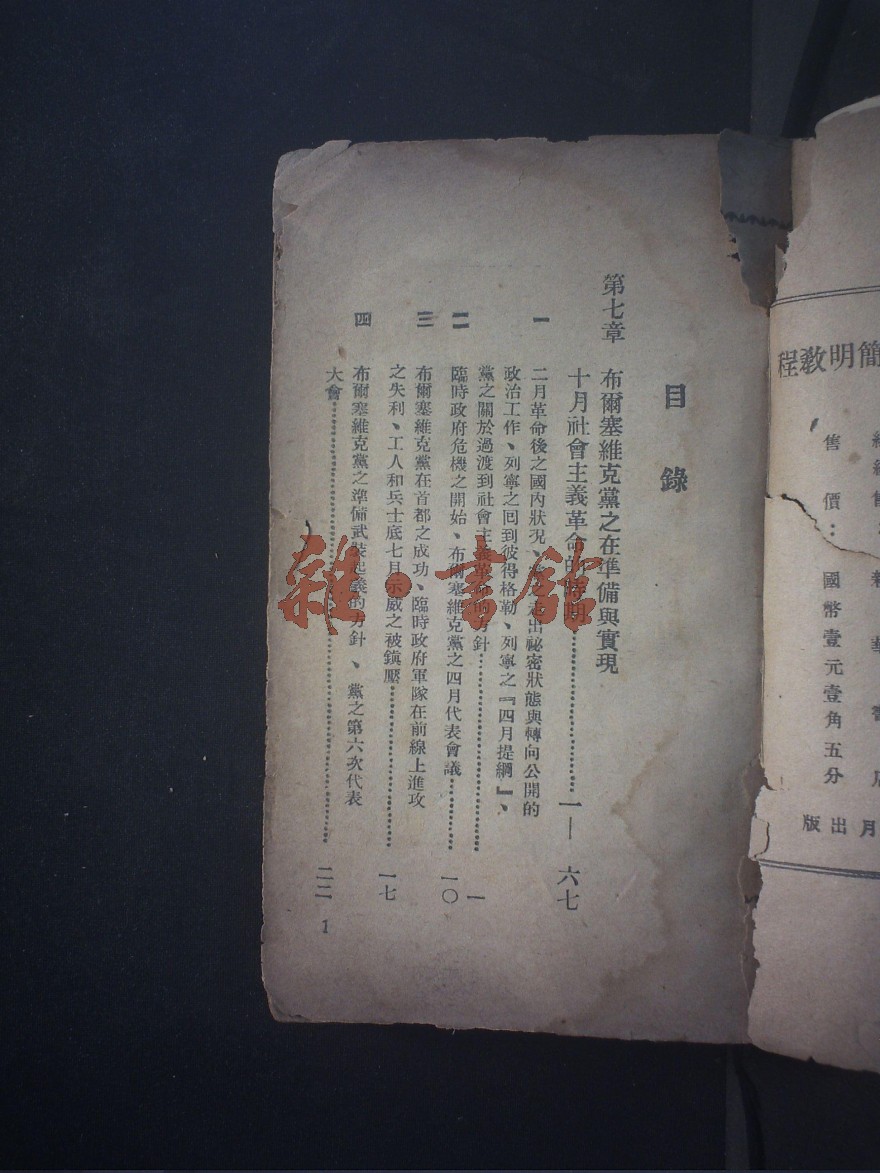 簡明教程
售價：國幣壹元壹角五分
月出版
目錄
第七章　布爾塞維克黨之在準備與實現
十月社會主義革命的時期…………一—六七
一　二月革命後之國內狀況、黨之走出祕密狀態與轉向公開的
政治工作、列寧之回到彼得格勒、列寧之『四月提綱』、
黨之關於過渡到社會主義革命的方針…………一
二　臨時政府危機之開始、布爾塞維克黨之四月代表會議…………一〇
三　布爾塞維克黨在首都之成功、臨時政府軍隊在前線上進攻
之失利、工人和兵士底七月示威之被鎮壓…………一七
四　布爾塞維克黨之準備武裝起義的方針、黨之第六次代表
大會…………二二
1
雜·書館